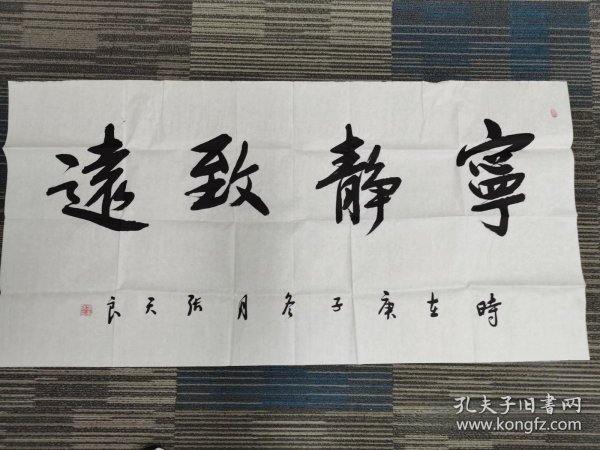 寧靜致遠
時在庚子冬月張天良
孔夫子旧書网
www.kongfz.com